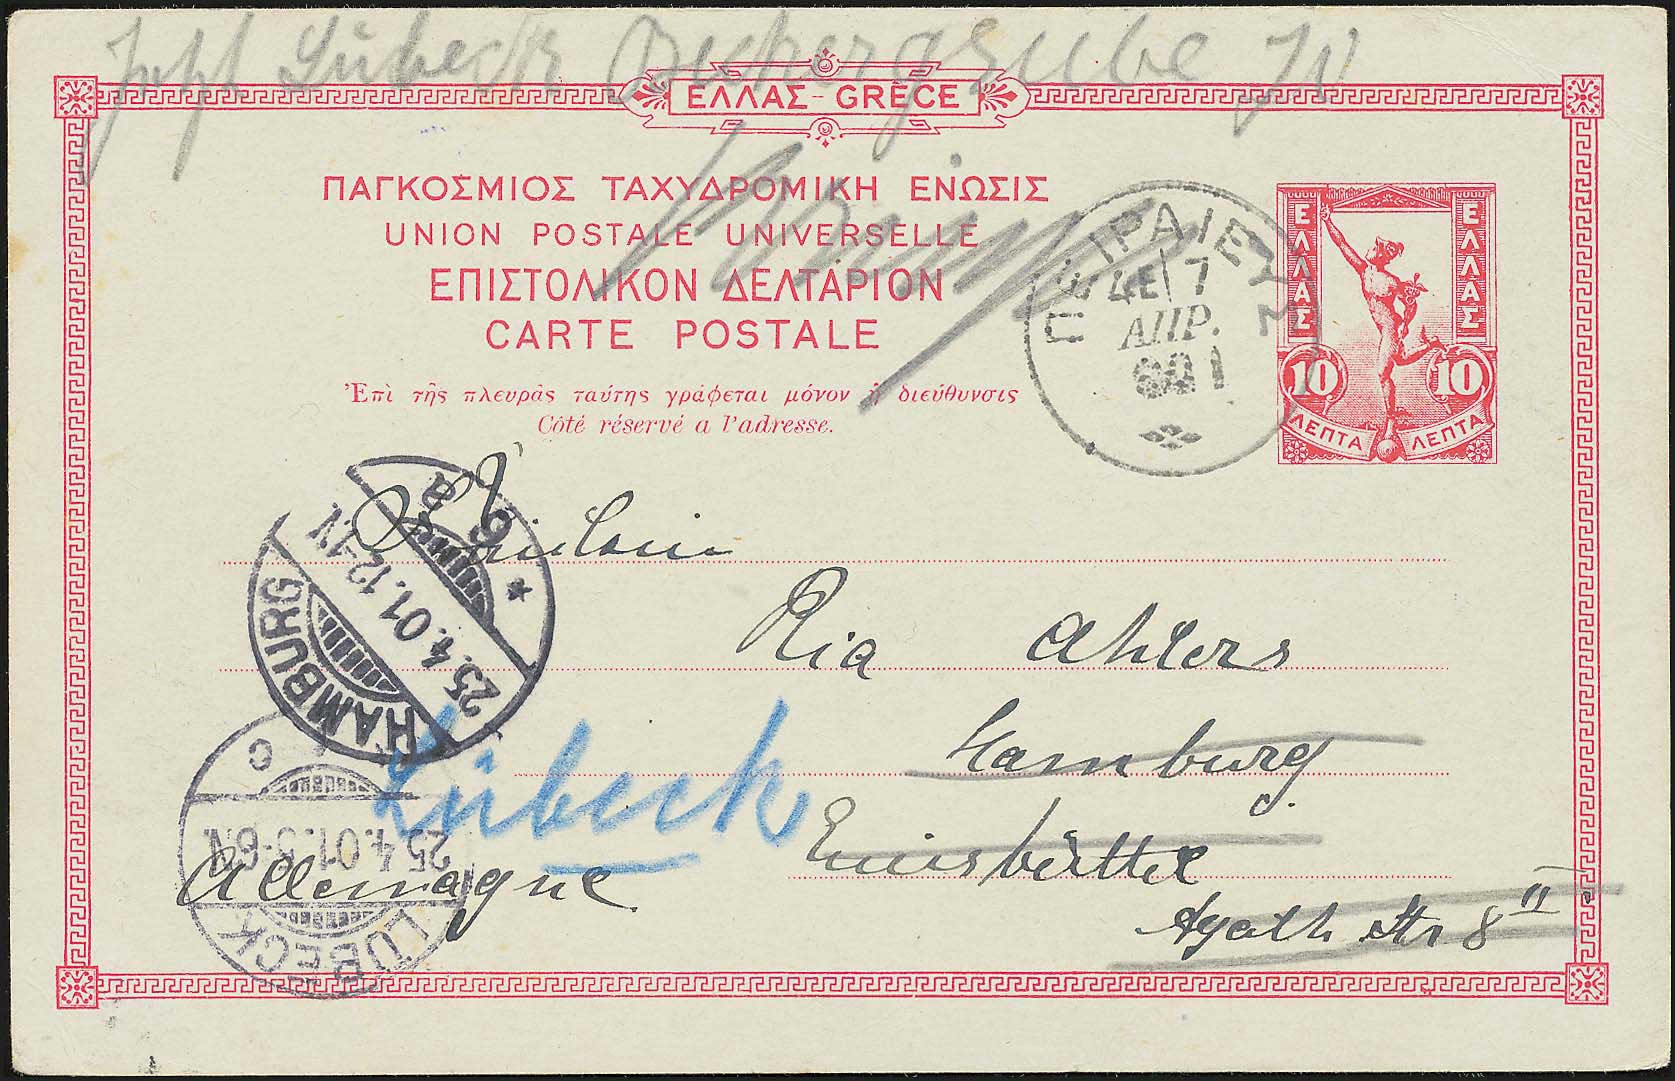 Lübeck
ΕΛΛΑΣ - GRÈCE
ΠΑΓΚΟΣΜΙΟΣ ΤΑΧΥΔΡΟΜΙΚΗ ΕΝΩΣΙΣ
UNION POSTALE UNIVERSELLE
ΕΠΙΣΤΟΛΙΚΟΝ ΔΕΛΤΑΡΙΟΝ
CARTE POSTALE
Ἐπὶ τῆς πλευρᾶς ταύτης γράφεται μόνον ἡ διεύθυνσις
Côté réservé a l'adresse.
ΠΕΙΡΑΙΕΥΣ
7
ΑΠΡ.
901
ΕΛΛΑΣ
ΕΛΛΑΣ
10
10
ΛΕΠΤΑ
ΛΕΠΤΑ
Fräulein
Ria Ahlers
Hamburg
Eimsbüttel
Agath Str 8 II
Lübeck
Allemagne
HAMBURG
25.4.01.12-1N
* 6 a
LÜBECK
25.4.01.5-6N
c